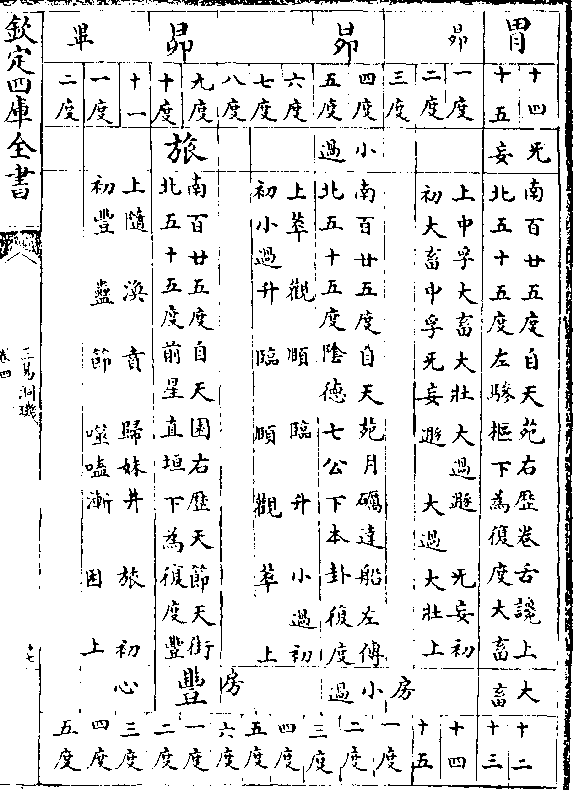 胃 昴 昴 昴 畢
十四 十五 一度 二度 三度 四度 五度 六度 七度 八度 九度 十度 十一 一度 二度
无妄 小過 旅
南百廿五度自天苑右歷卷舌讒上
北五十五度左驂樞下為復度大畜
上中孚大畜大壯大過遯 无妄初
初大畜中孚无妄遯 大過大壯上
南百廿五度自天苑月礪達船左傅
北五十五度陰德七公下本卦復度
上萃觀順臨升 小過初
初小過升臨順觀萃上
南百廿五度自天囷右歷天節天街
北五十五度前星直垣下為復度豐
上隨渙賁歸妹井旅初
初豐蠱節噬嗑漸困上
大畜 房 小過 房 豐 心
十二 十三 十四 十五 一度 二度 三度 四度 五度 六度 一度 二度 三度 四度 五度
欽定四庫全書
三易洞璣
卷四
十七